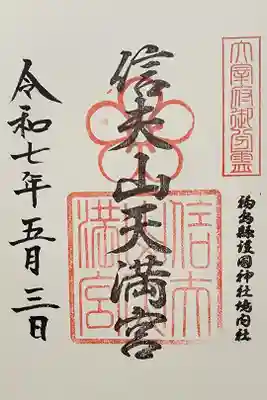 太宰府御分霊
福島縣護國神社境内社
信夫山天満宮
信夫
天満宮
令和七年五月三日